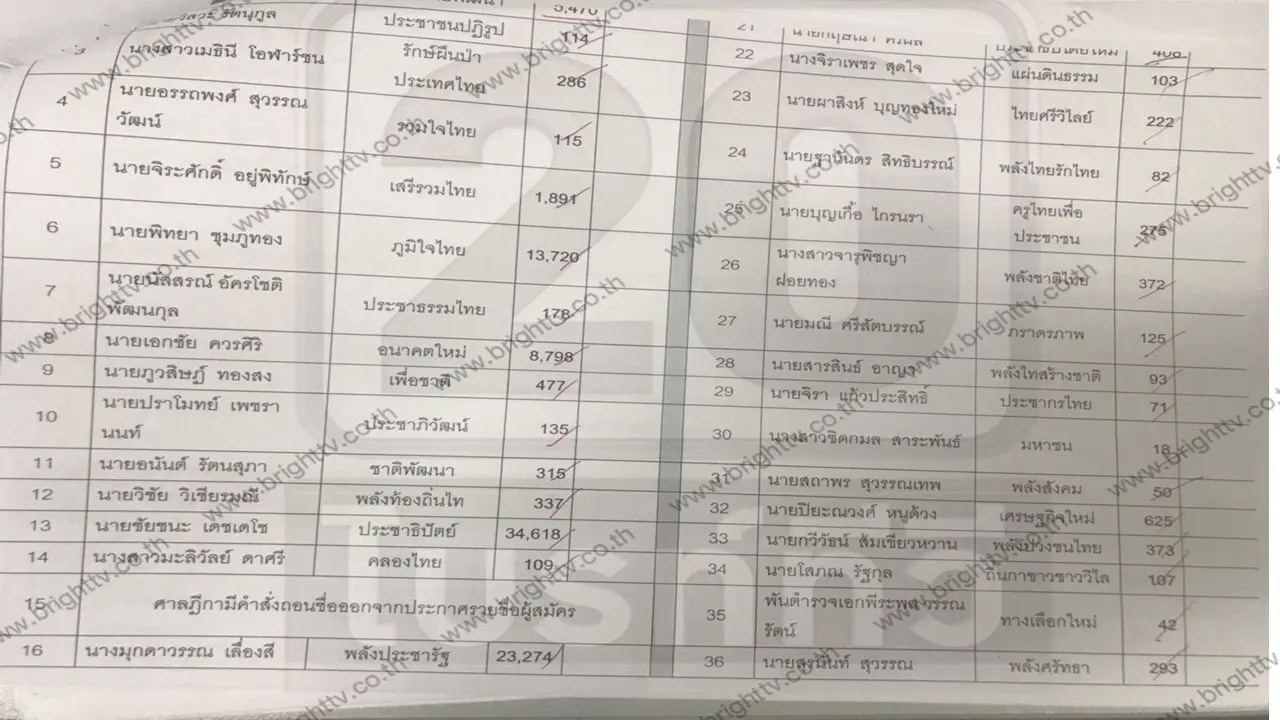 รัตนกูล ประชาชนปฏิรูป 114
นางสาวเมธินี โอฬาร์ชน รักษ์ผืนป่า
ประเทศไทย 286
4 นายอรรถพงศ์ สุวรรณ
วัฒน์ รวมใจไทย 115
5 นายจิระศักดิ์ อยู่พิทักษ์ เสรีรวมไทย 1,891
6 นายพิทยา ชุมภูทอง ภูมิใจไทย 13,720
7 นายนัสสรณ์ อัครโชติ
พัฒนกุล ประชาธรรมไทย 178
8 นายเอกชัย ควรศิริ อนาคตใหม่ 8,798
9 นายภูวสิษฏ์ ทองสง เพื่อชาติ 477
10 นายปราโมทย์ เพชรา
นนท์ ประชาภิวัฒน์ 135
11 นายอนันต์ รัตนสุภา ชาติพัฒนา 315
12 นายวิชัย วิเชียรมณี พลังท้องถิ่นไท 337
13 นายชัยชนะ เดชเดโช ประชาธิปัตย์ 34,618
14 นางสาวมะลิวัลย์ ดาศรี คลองไทย 109
15 ศาลฎีกามีคำสั่งถอนชื่อออกจากประกาศรายชื่อผู้สมัคร
16 นางมุกดาวรรณ เลื่องสี พลังประชารัฐ 23,274
21
22 นางจิราเพชร สุดใจ แผ่นดินธรรม 103
23 นายผาสิงห์ บุญทองใหม่ ไทยศรีวิไลย์ 222
24 นายฐานันดร สิทธิบรรณ์ พลังไทยรักไทย 82
25 นายบุญเกื้อ ไกรนรา ครูไทยเพื่อ
ประชาชน 275
26 นางสาวจารุพิชญา
ฝอยทอง พลังชาติไทย 372
27 นายมณี ศรีสัตบรรณ์ ภราดรภาพ 125
28 นายสารสินธ์ อาญา พลังไทสร้างชาติ 93
29 นายจิรา แก้วประสิทธิ์ ประชากรไทย 71
30 นางสาวชิดกมล สาระพันธ์ มหาชน 18
31 นายสถาพร สุวรรณเทพ พลังสังคม 50
32 นายปิยะณวงศ์ หนูด้วง เศรษฐกิจใหม่ 625
33 นายกวีวัธน์ ส้มเขียวหวาน พลังปวงชนไทย 373
34 นายโสภณ รัฐกุล ถิ่นกาขาวชาววิไล 107
35 พันตำรวจเอกพีระพล วรรณ
รัตน์ ทางเลือกใหม่ 42
36 นายสุรนันท์ สุวรรณ พลังศรัทธา 293
20
www.brighttv.co.th